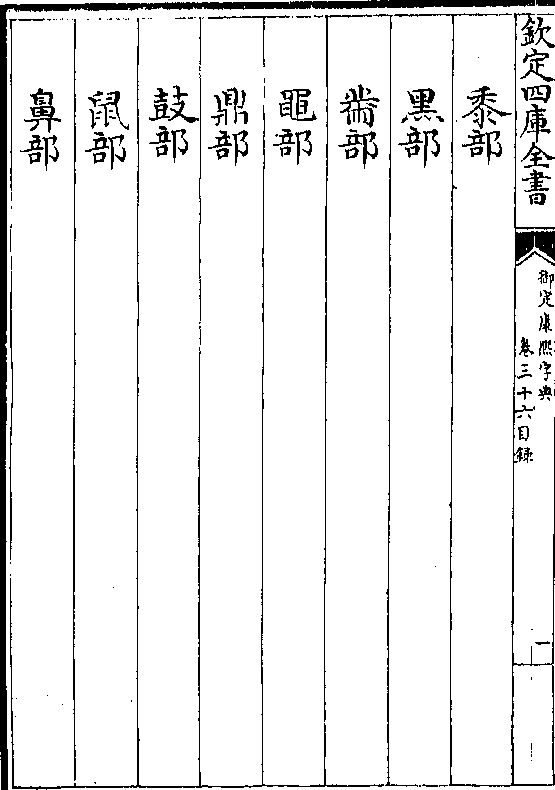 欽定四庫全書
御定康熙字典
卷三十六目錄
一
黍部
黑部
黹部
黽部
鼎部
鼓部
鼠部
鼻部